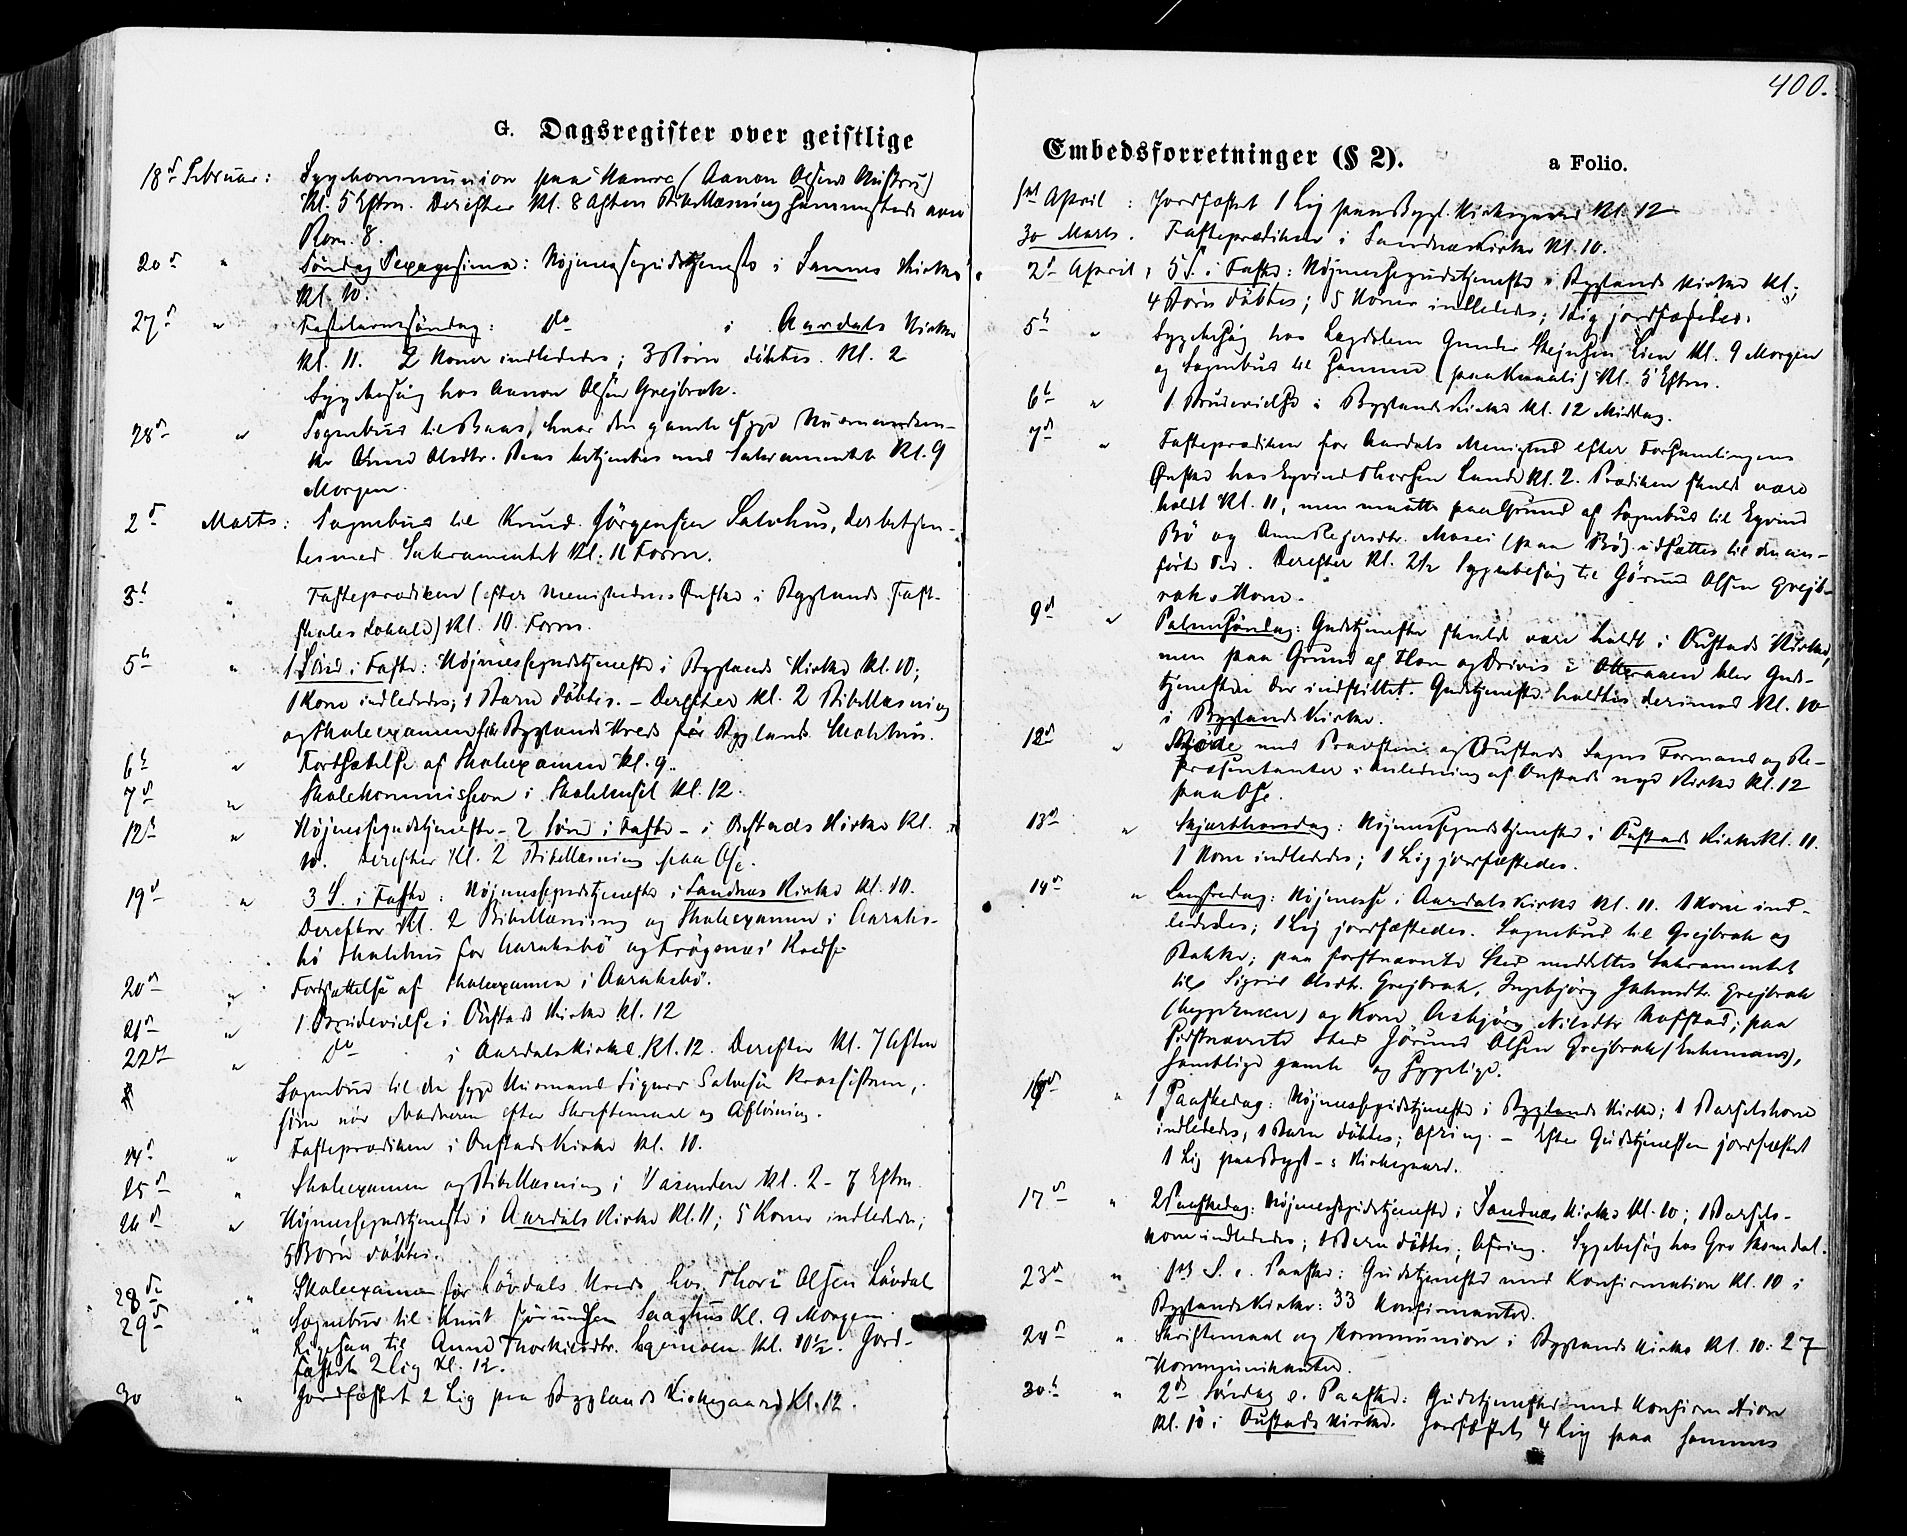 400.
G. Dagsregister over geistlige
18d Februar: Sygekommunion paa (Aanon Olsens Hustru)
Kl. 5 Eftm. Derefter Kl. 8 Aften Bibellæsning sammesteds over
Rom. 8.
20d " Søndag Sexagesima: Høimessegudstjeneste i Sannes Kirke
Kl. 10.
27d " Fastelavnssøndag: do i Aardals Kirke
Kl. 11. 2 Koner indlededes; 3 Børn døbtes. Kl. 2
Sygebesøg hos Aanon Olsen Grejbrok.
28d " Sognebud til Baas, hvor den gamle syge
Anne Olsdtr. Baas betjentes med Sakramentet Kl. 9
Morgen.
2d Marts: Sognebud til Knud Jörgensen Salvhus, der betjen-
tes med Sakramentet Kl. 11 Form.
3d " Fasteprædiken (efter Menighedens Ønske i Byglands Fast-
skoles Lokale) Kl. 10 Form.
5t " 1 Sönd. i Faste: Højmessegudstjeneste i Byglands Kirke Kl. 10;
1 Kone indlededes; 1 Barn döbtes. – Derefter Kl. 2 Bibellæsning
og Skoleexamen for Byglands Kreds for Byglands Skolehus.
6t " Fortsættelse af Skoleexamen Kl. 9.
7d " Skolekommission i Skolehuset Kl. 12.
12t " Højmessegudstjeneste – 2 Sönd i Faste – i Østads Kirke Kl.
10. Derefter Kl. 2 Bibellæsning paa Ose.
19d " 3 S. i Faste: Højmessegudstjeneste i Sandnæs Kirke Kl. 10.
Derefter Kl. 2 Bibellæsning og Skoleexamen i Aaraks-
bö Skolehus for Aaraksbö og Frögenæs Kredse
20d " Fortsættelse af Skoleexamen i Aaraksbö.
21d " 1 Brudevielse i Østads Kirke Kl. 12
22d " do i Aardals Kirke Kl. 12. Derefter Kl. 7 Aften
Sognebud til den syge Signe Salvesen
som nöd Nadveren efter Skriftemaal og Aflösning.
24d " Fasteprædiken i Østads Kirke Kl. 10.
25d " Skoleexamen og Bibellæsning i Vasenden Kl. 2–7 Eftm.
26d " Höjmessegudstjeneste i Aardals Kirke Kl. 11; 5 Koner indlededes;
5 Börn döbtes.
28de " Skoleexamen for Lövdals Kreds hos Thore Olsen Lövdal
29d " Sognebud til Knut Jörundsen Saaghus Kl. 9 Morgen.
Ligesaa til Anne Thorkildsdtr. Kl. 10½. Jord-
fæstet 2 Lig Kl. 12.
30 " Jordfæstet 2 Lig paa Byglands Kirkegaard Kl. 12.
Embedsforretninger (§ 2). a Folio.
1st April: Jordfæstet 1 Lig paa Bygl. Kirkegaard Kl. 12
30 Marts. Fasteprædiken i Sandnæs Kirke Kl. 10.
2d April, 5 S. i Faste: Höjmessegudstjeneste i Byglands Kirke Kl.
4 Börn döbtes; 5 Koner indlededes; 1 Lig jordfæstedes.
5t " Sygebesög hos Lægdslem Gunder Lien Kl. 9 Morgen
og Sognebud til Samme (paa ) Kl. 5 Eftm.
6t " 1 Brudevielse i Byglands Kirke Kl. 12 Middag.
7d " Fasteprædiken for Aardals Menighed efter Forsamlingens
Ønske hos Eyvind Thorsen Lande Kl. 2. Prædiken skulde være
holdt Kl. 11, men maatte paa Grund af Sognebud til Eyvind
Bö og Anne Mosei (paa Bö) udsættes til den an-
förte Tid. Derefter Kl. 2½ Sygebesög til Jörund Olsen Grejb-
roks Kone.
9d " Palmesöndag: Gudstjeneste skulde være holdt i Østads Kirke,
men paa Grund af Flom og Drivis i Otteraaen blev Guds-
tjenesten der indstillet. Gudstjeneste holdtes derimod Kl. 10
i Byglands Kirke.
12d " Möde med Provsten og Østads Sogns Formænd og Re-
præsentanter i Anledning af Østads nye Kirke Kl. 12
paa Ose.
13d " Skjærthorsdag: Höjmessegudstjeneste i Østads Kirke Kl. 11.
1 Kone indlededes; 1 Lig jordfæstedes.
14d " Langfredag: Höjmesse i Aardals Kirke Kl. 11. 1 Kone ind-
lededes; 1 Lig jordfæstedes. Sognebud til Grejbrok og
Bakke; paa förstnævnte Sted meddeltes Sakramentet
til Sigrid Olsdtr. Grejbrok, Ingebjörg Grejbrok
og Kone Asbjörg Nilsdtr Hofstad; paa
sidstnævnte Sted Jörund Olsen Grejbrok (Enkemand),
samtlige gamle og sygelige.
16d " 1 Paaskedag: Höjmessegudstjeneste i Byglands Kirke; 1 Barselkone
indlededes, 1 Barn döbtes; Ofring. – Efter Gudstjenesten jordfæstet
1 Lig paa Bygl–s Kirkegaard.
17d " 2 Paaskedag: Höjmessegudstjeneste i Sandnæs Kirke Kl. 10; 1 Barsels-
kone indlededes; 1 Barn döbtes; Ofring. Sygebesög hos Gro Skomdal.
23d " 1st S. e. Paaske: Gudstjeneste med Konfirmation Kl. 10 i
Byglands Kirke: 33 Konfirmanter.
24d " Skriftemaal og Kommunion i Byglands Kirke Kl. 10: 27
Kommunikanter.
30t " 2d Söndag e. Paaske: Gudstjeneste med Konfirmation
Kl. 10 i Østads Kirke. Jordfæstet 4 Lig paa sammes